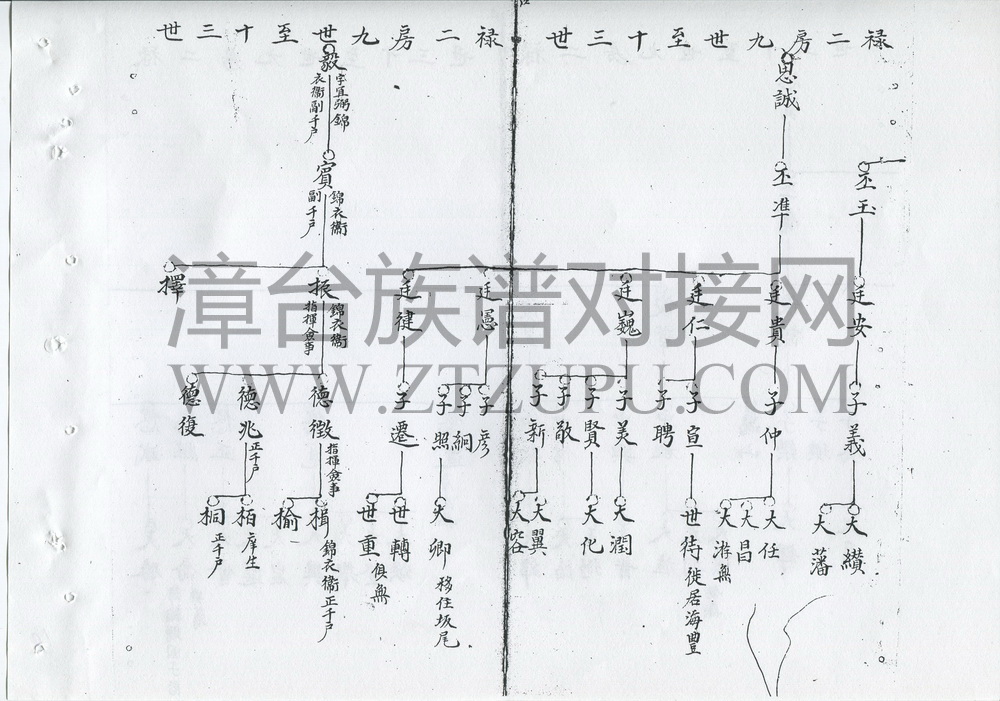 禄二房九世至十三世
思誠
丕準
丕玉
廷安
廷貴
廷仁
廷巍
子義
子仲
子宣
子聘
子美
子賢
子敬
子新
大纘
大藩
大任
大昌
大游無
世待徙居海豐
大潤
大化
大翼
大容
禄二房九世至十三世
毅
字宜弼錦
衣衞副千戶
賓
錦衣衞
副千戶
廷憲
廷健
振
錦衣衞
指揮僉事
擇
子彦
子絅
子照
子遷
德徵
指揮僉事
德兆
正千戶
德復
大卿移住坂尾
世轉
世重
俱無
楫
錦衣衞正千戶
榆
栢
庠生
桐
正千戶
漳台族谱对接网
WWW.ZTZUPU.COM